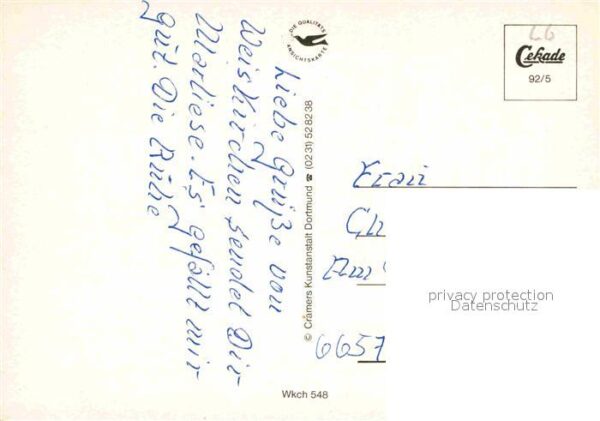 Liebe Grüße von
Weiskirchen sendet Dir
Marliese. Es gefällt mir
gut. Die Ruhe
DIE QUALITÄTS
ANSICHTSKARTE
© Cramers Kunstanstalt Dortmund ☎ (0231) 528238
Wkch 548
L6
Cekade
92/5
Frau
Am
6657
privacy protection
Datenschutz